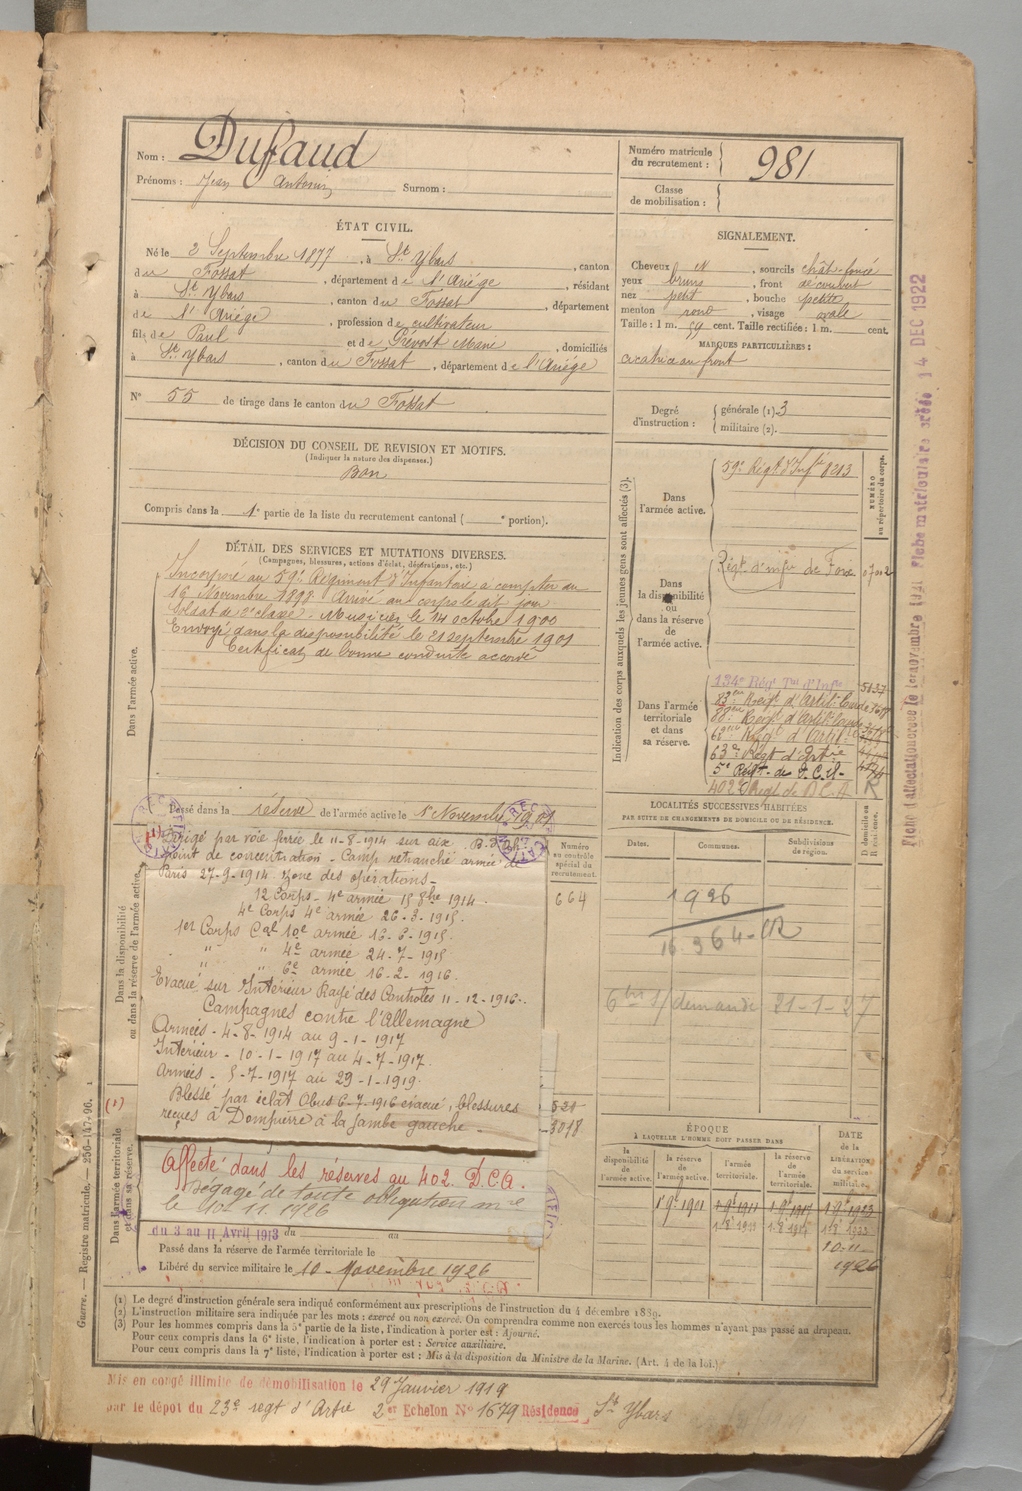 Nom : Dufaud
Prénoms : Jean Antonin Surnom :
Numéro matricule du recrutement : 981
Classe de mobilisation :
ÉTAT CIVIL.
Né le 2 Septembre 1877, à St Ybars, canton
du Fossat, département de l'Ariége, résidant
à St Ybars, canton du Fossat, département
de l'Ariége, profession de cultivateur
fils de Paul et de Prévost Marie, domiciliés
à St Ybars, canton du Fossat, département de l'Ariége
N° 55 de tirage dans le canton du Fossat
SIGNALEMENT.
Cheveux N, sourcils chât-foncé
yeux bruns, front découvert
nez petit, bouche petite
menton rond, visage ovale
Taille : 1 m. 59 cent. Taille rectifiée : 1 m. cent.
MARQUES PARTICULIÈRES :
cicatrice au front
Degré d'instruction : générale (1). 3
militaire (2).
DÉCISION DU CONSEIL DE REVISION ET MOTIFS.
(Indiquer la nature des dispenses.)
Bon
Compris dans la 1e partie de la liste du recrutement cantonal ( portion).
DÉTAIL DES SERVICES ET MUTATIONS DIVERSES.
(Campagnes, blessures, actions d'éclat, décorations, etc.)
Dans l'armée active.
Incorporé au 59e Régiment d'Infanterie à compter du
16 Novembre 1898. Arrivé au corps le dit jour
Soldat de 2e classe. Musicien le 14 octobre 1900
Envoyé dans la disponibilité le 21 septembre 1901
Certificat de bonne conduite accordé
Passé dans la réserve de l'armée active le 1er Novembre 1901
Indication des corps auxquels les jeunes gens sont affectés (3).
NUMÉRO au répertoire du corps.
Dans l'armée active.
59e Régt d'Infie 8213
Dans la disponibilité ou dans la réserve de l'armée active.
Régt d'infie de Foix
Dans l'armée territoriale et dans sa réserve.
134e Régt Tal d'Infie 5137
83ème Régt d'Artil. Lourde
88ème Régt d'Artil. Lourde
62ème Régt d'Artil
63e Régt d'Artie
5e Régt de D.C.A.
402e Régt de D.C.A. R
LOCALITÉS SUCCESSIVES HABITÉES
PAR SUITE DE CHANGEMENTS DE DOMICILE OU DE RÉSIDENCE.
Dates. Communes. Subdivisions de région. D domicile ou R résidence.
1926
16.964-CR
demande 21-1-27
Dans la disponibilité ou dans la réserve de l'armée active.
Numéro au contrôle spécial du recrutement.
664
(1) Dirigé par voie ferrée le 11-8-1914 sur aix
point de concentration - Camp retranché armée de
Paris 27-9-1914 zone des opérations -
12 Corps - 4e armée 15 8bre 1914.
4e Corps 4e armée 26-3-1915.
1er Corps Cal 10e armée 16-6-1915.
" " 4e armée 24-7-1915
" " 6e armée 16-2-1916.
Evacué sur Intérieur Rayé des Controles 11-12-1916.
Campagnes contre l'Allemagne
Armées - 4-8-1914 au 9-1-1917
Intérieur - 10-1-1917 au 4-7-1917.
Armées - 5-7-1917 au 29-1-1919.
Blessé par éclat Obus 6-7-1916 évacué, blessures
reçues à Dompierre à la jambe gauche -
(1)
521
3018
Dans l'armée territoriale et dans sa réserve.
Affecté dans les réserves au 402. D.C.A.
Dégagé de toute obligation mre
le 10.11.1926
du 3 au 11 Avril 1913 du au
Passé dans la réserve de l'armée territoriale le
Libéré du service militaire le 10 Novembre 1926
ÉPOQUE
À LAQUELLE L'HOMME DOIT PASSER DANS
DATE de la LIBÉRATION du service militaire.
la disponibilité de l'armée active. la réserve de l'armée active. l'armée territoriale. la réserve de l'armée territoriale.
1 9e 1901 1 9e 1911 1 9e 1917 1 9e 1923
10-11-
1926
(1) Le degré d'instruction générale sera indiqué conformément aux prescriptions de l'instruction du 4 décembre 1889.
(2) L'instruction militaire sera indiquée par les mots : exercé ou non exercé. On comprendra comme non exercés tous les hommes n'ayant pas passé au drapeau.
(3) Pour les hommes compris dans la 5e partie de la liste, l'indication à porter est : Ajourné.
Pour ceux compris dans la 6e liste, l'indication à porter est : Service auxiliaire.
Pour ceux compris dans la 7e liste, l'indication à porter est : Mis à la disposition du Ministre de la Marine. (Art. 4 de la loi.)
Mis en congé illimité de démobilisation le 29 Janvier 1919
par le dépôt du 23e regt d'Artie 2er Echelon N° 1679 Résidence St Ybars
Guerre. — Registre matricule. — 256-147-96.
Fiche matriculaire créée 14 DEC 1922